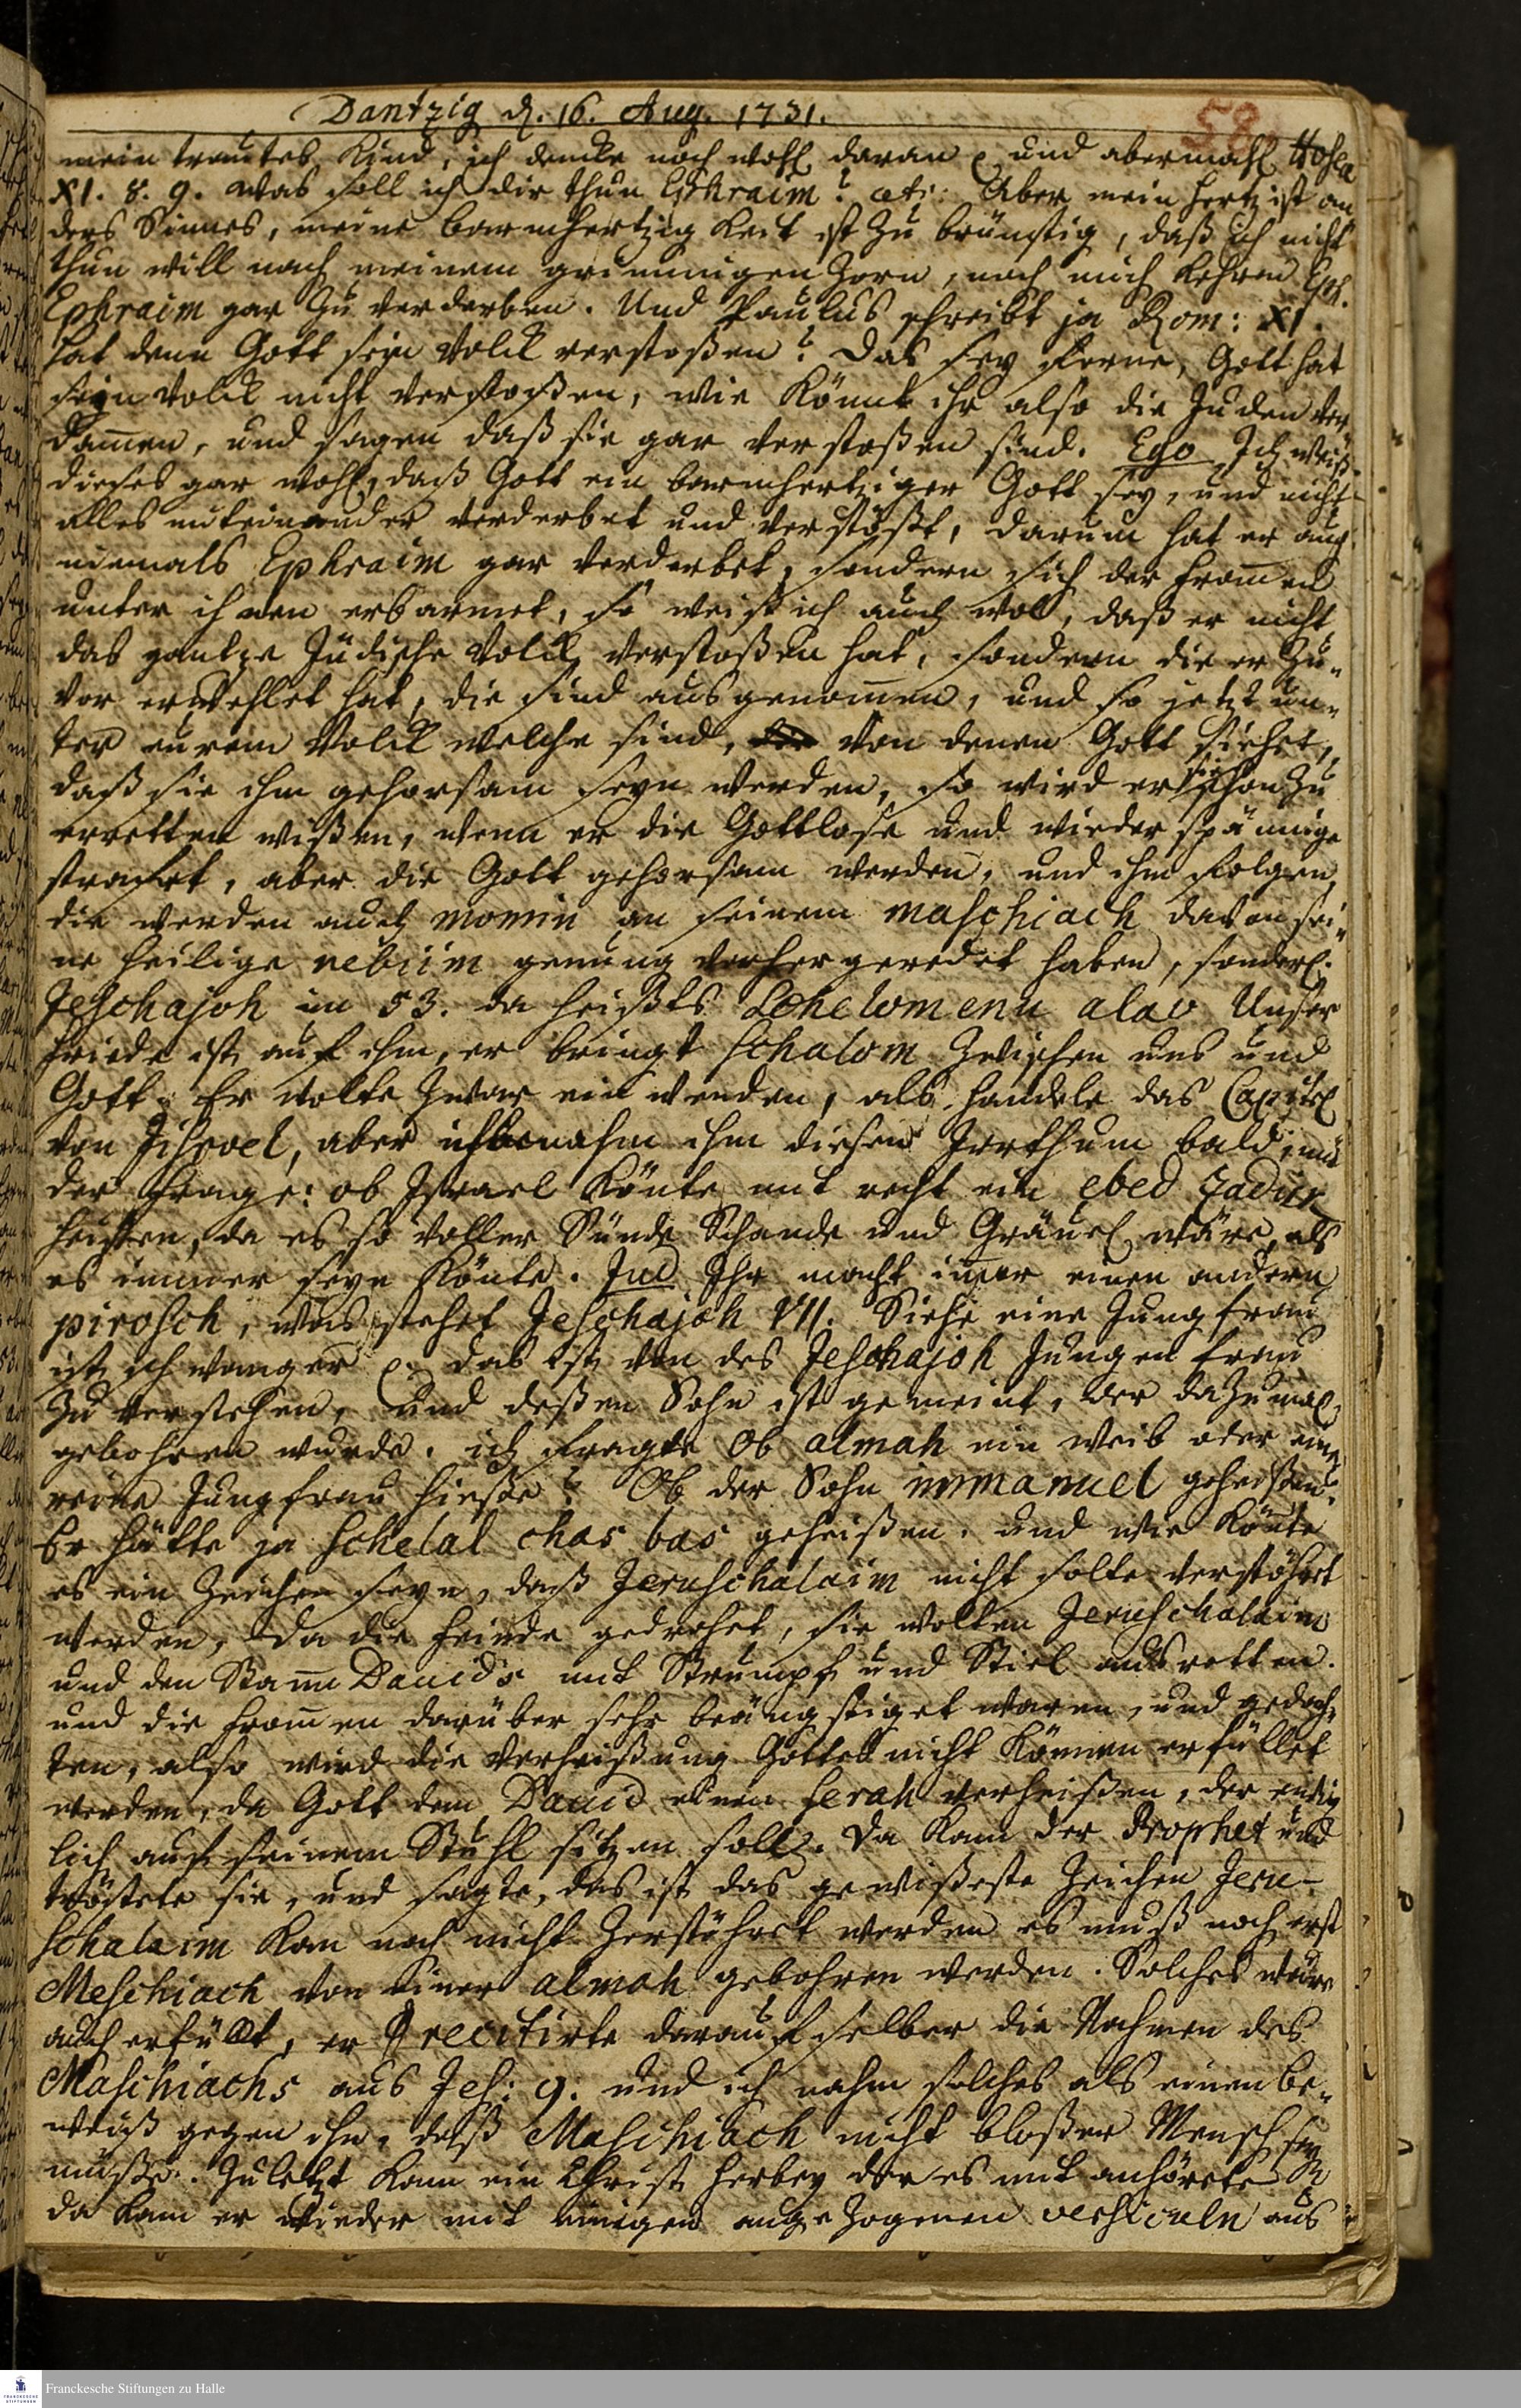 Dantzig d. 16. Aug. 1731.
58
mein trautes Kind, ich dencke noch wohl daran und abermahl Hosea
XI. 8. 9. was soll ich dir thun Ephraim? etc: Aber mein hertz ist an
ders Sinnes, meine barmhertzigkeit ist zu brünstig, daß ich nicht
thun will nach meinem grimmigen Zorn, noch mich kehren Eph.
Ephraim gar zu verderben. Und Paulus schreibt ja Rom: XI.
hat denn Gott sein Volck verstoßen? das sey ferne, Gott hat
sein Volck nicht verstoßen, wie könnt ihr also die Juden ver
dam̄en, und sagen daß sie gar verstoßen sind. Ego Ich weiß
dieses gar wohl, daß Gott ein barmhertziger Gott sey, und nicht
alles miteinander verderbet und verstößt, darum hat er auch
niemals Ephraim gar verderbet, sondern sich der from̄en
unter ihnen erbarmet, so weiß ich auch wol, daß er nicht
das gantze Jüdische Volck verstoßen hat, sondern die er zu„
vor erwehlet hat, die sind ausgenom̄en, und so jetzt un„
ter eurem Volck welche sind, von denen Gott siehet,
daß sie ihm gehorsam seyn werden, so wird er sie schon zu
erretten wißen, wenn er die Gottlose und wiederspännige
strafet, aber die Gott gehorsam werden, und ihm folgen,
die werden auch momin an seinem maschiach davon sei„
ne heilige nebiim genung vorher geredet haben, sonderl.
Jeschajoh im 53. da heißts Schelomenu alav Unser
friede ist auf ihm, er bringt schalom zwischen uns und
Gott. Er wolte zwar einwenden, als handele das Capitel
von Jisroel, aber ich benahm ihm diesen Irrthum bald, mit
der frage: ob Israel könte mit recht ein ebed zadik
heißen, da es so voller Sünde Schande und Gräuel wäre, als
es immer seyn könte. Jud Ihr macht im̄er einen andern
pirosch, was stehet Jeschajoh VII. Siehe eine Jungfrau
ist schwanger das ist von des Jeschajoh jungen frau
zu verstehen, und deßen Sohn ist gemeint, der dazumal
gebohren wurde. ich fragte Ob almah ein Weib oder eine
reine Jungfrau hieße? Ob der Sohn immanuel geheißen?
Er hätte ja Schelal chas bas geheißen. und wie könte
es ein Zeichen seyn, daß Jeruschalaim nicht solte verstöhrt
werden, da die feinde gedrohet, sie wolten Jeruschalaim
und den Stam̄ Davids mit Strumpf und Stiel ausrotten.
und die from̄en darüber sehr beängstiget waren, und gedach„
ten, also wird die Verheißung Gottes nicht können erfüllet
werden, da Gott dem David einen serah verheißen, der
lich auf seinem Stuhl sitzen soll. Da kam der Prophet und
tröstete sie, und sagte, das ist das gewißeste Zeichen Jeru-
schalaim kan noch nicht zerstöhret werden es muß noch erst
Meschiach von einer almah gebohren werden. Solches wäre
auch erfüllt, er recitirte darauf selber die Nahmen des
Maschiachs aus Jes: 9. und ich nahm solches als einen be„
weiß gegen ihn, daß Maschiach nicht bloßer Mensch sey
muße. Zuletzt kam ein Christ herbey der es mit anhörete
da kam er wieder mit einigen angezogenen versiculn aus
Franckesche Stiftungen zu Halle